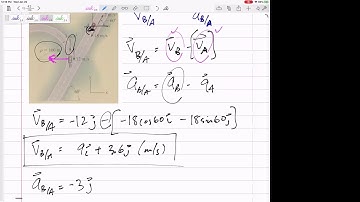 V⃗_B/A a⃗_B/A
V⃗_B/A = V⃗_B - [V⃗_A]
a⃗_B/A = a⃗_B - a⃗_A
V⃗_B/A = -12j - [-18cos60i - 18sin60j]
V⃗_B/A = 9i + 3.6j (m/s)
a⃗_B/A = -3j